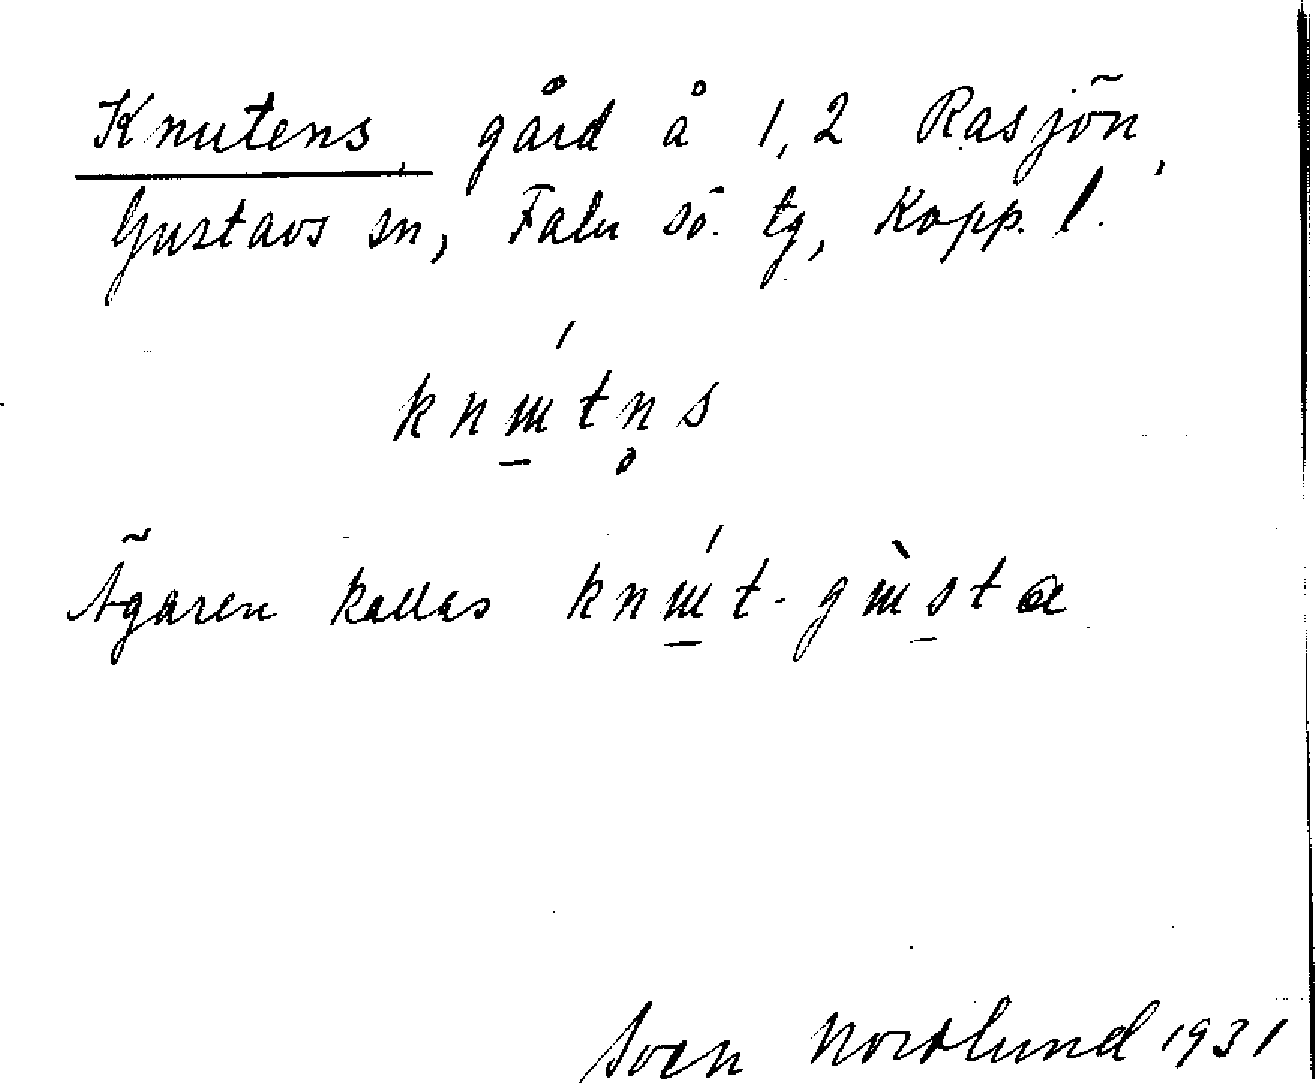 Knutens, gård å 1,2 Rasjön,
Gustavs sn, Falu sö. tg, Kopp. l.
knɯ̱́tn̥s
Ägaren kallas knɯ̱́t-gɯ̱̀sta
Sven Nordlund 1931